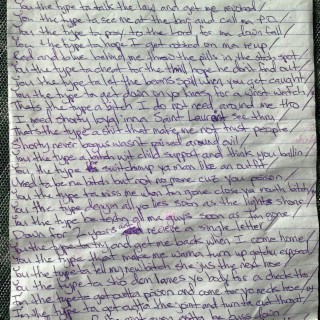 You the type to talk the law and get me revoked
You the type to see me at the bar and call my P.O.
You the type to pray to the Lord for my down fall
You the type to hope I get robbed on my reup
Red and blue behind me throw the pills in the stash spot
You the type to cheat for the thrill hope I don't find out
You the type to the beans spill when you get caught
You the type to get down on yo knees for a wrist watch
That's the type a bitch I do not need around me tho
I need shorty loyal in a Saint Laurent see thru
That's the type a shit that make me not trust people
Shorty never bogus wasn't poised around evil
You the type a bitch wit child support and think you ballin
You the type switch up ya man like an outfit
Used to be my but now no phone calls you poison
You the type to kiss me when I'm gone close ya mouth bitch
You the type deny all yo lies soon as the lights shone
You the type be texting all my guys soon as I'm gone
Down for 2 years never recieve a single letter
You the type to try and get me back when I come home
You the type that make me wanna turn up get you exposed
You the type to tell my new bitch she just the next hoe
You the type to sho dem lames yo body for a check tho
I'm the type to get outta prison and come for yo neck hoe
I'm the type to get outta the joint and turn to cut throat